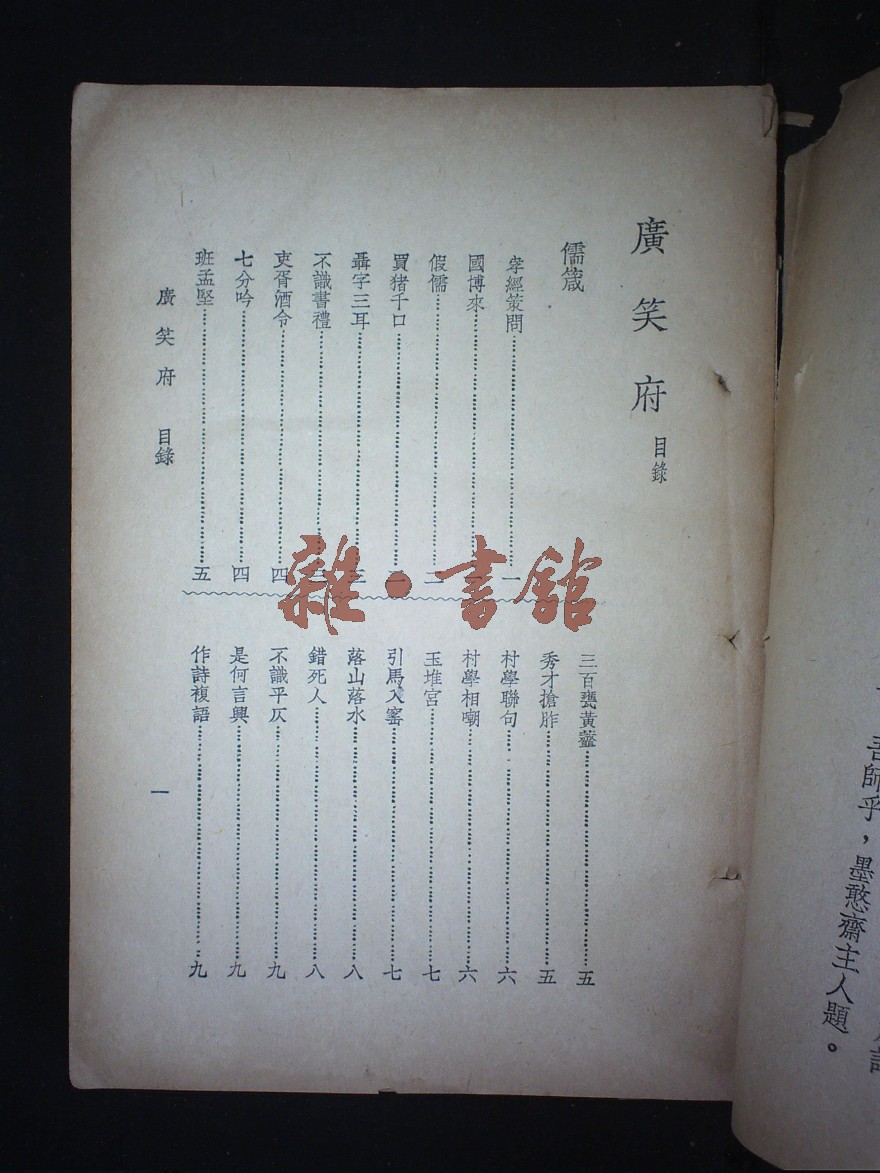 吾師乎，墨憨齋主人題。
廣笑府 目錄
儒箴
孝經策問……一
國博來……
假儒……二
買猪千口……
聶字三耳……三
不識書禮……
吏胥酒令……四
七分吟……四
班孟堅……五
三百甕黃虀……五
秀才搶胙……五
村學聯句……六
村學相嘲……六
玉堆宮……七
引馬入窰……七
落山落水……八
錯死人……八
不識平仄……九
是何言興……九
作詩複語……九
廣笑府 目錄
一
雜·書館